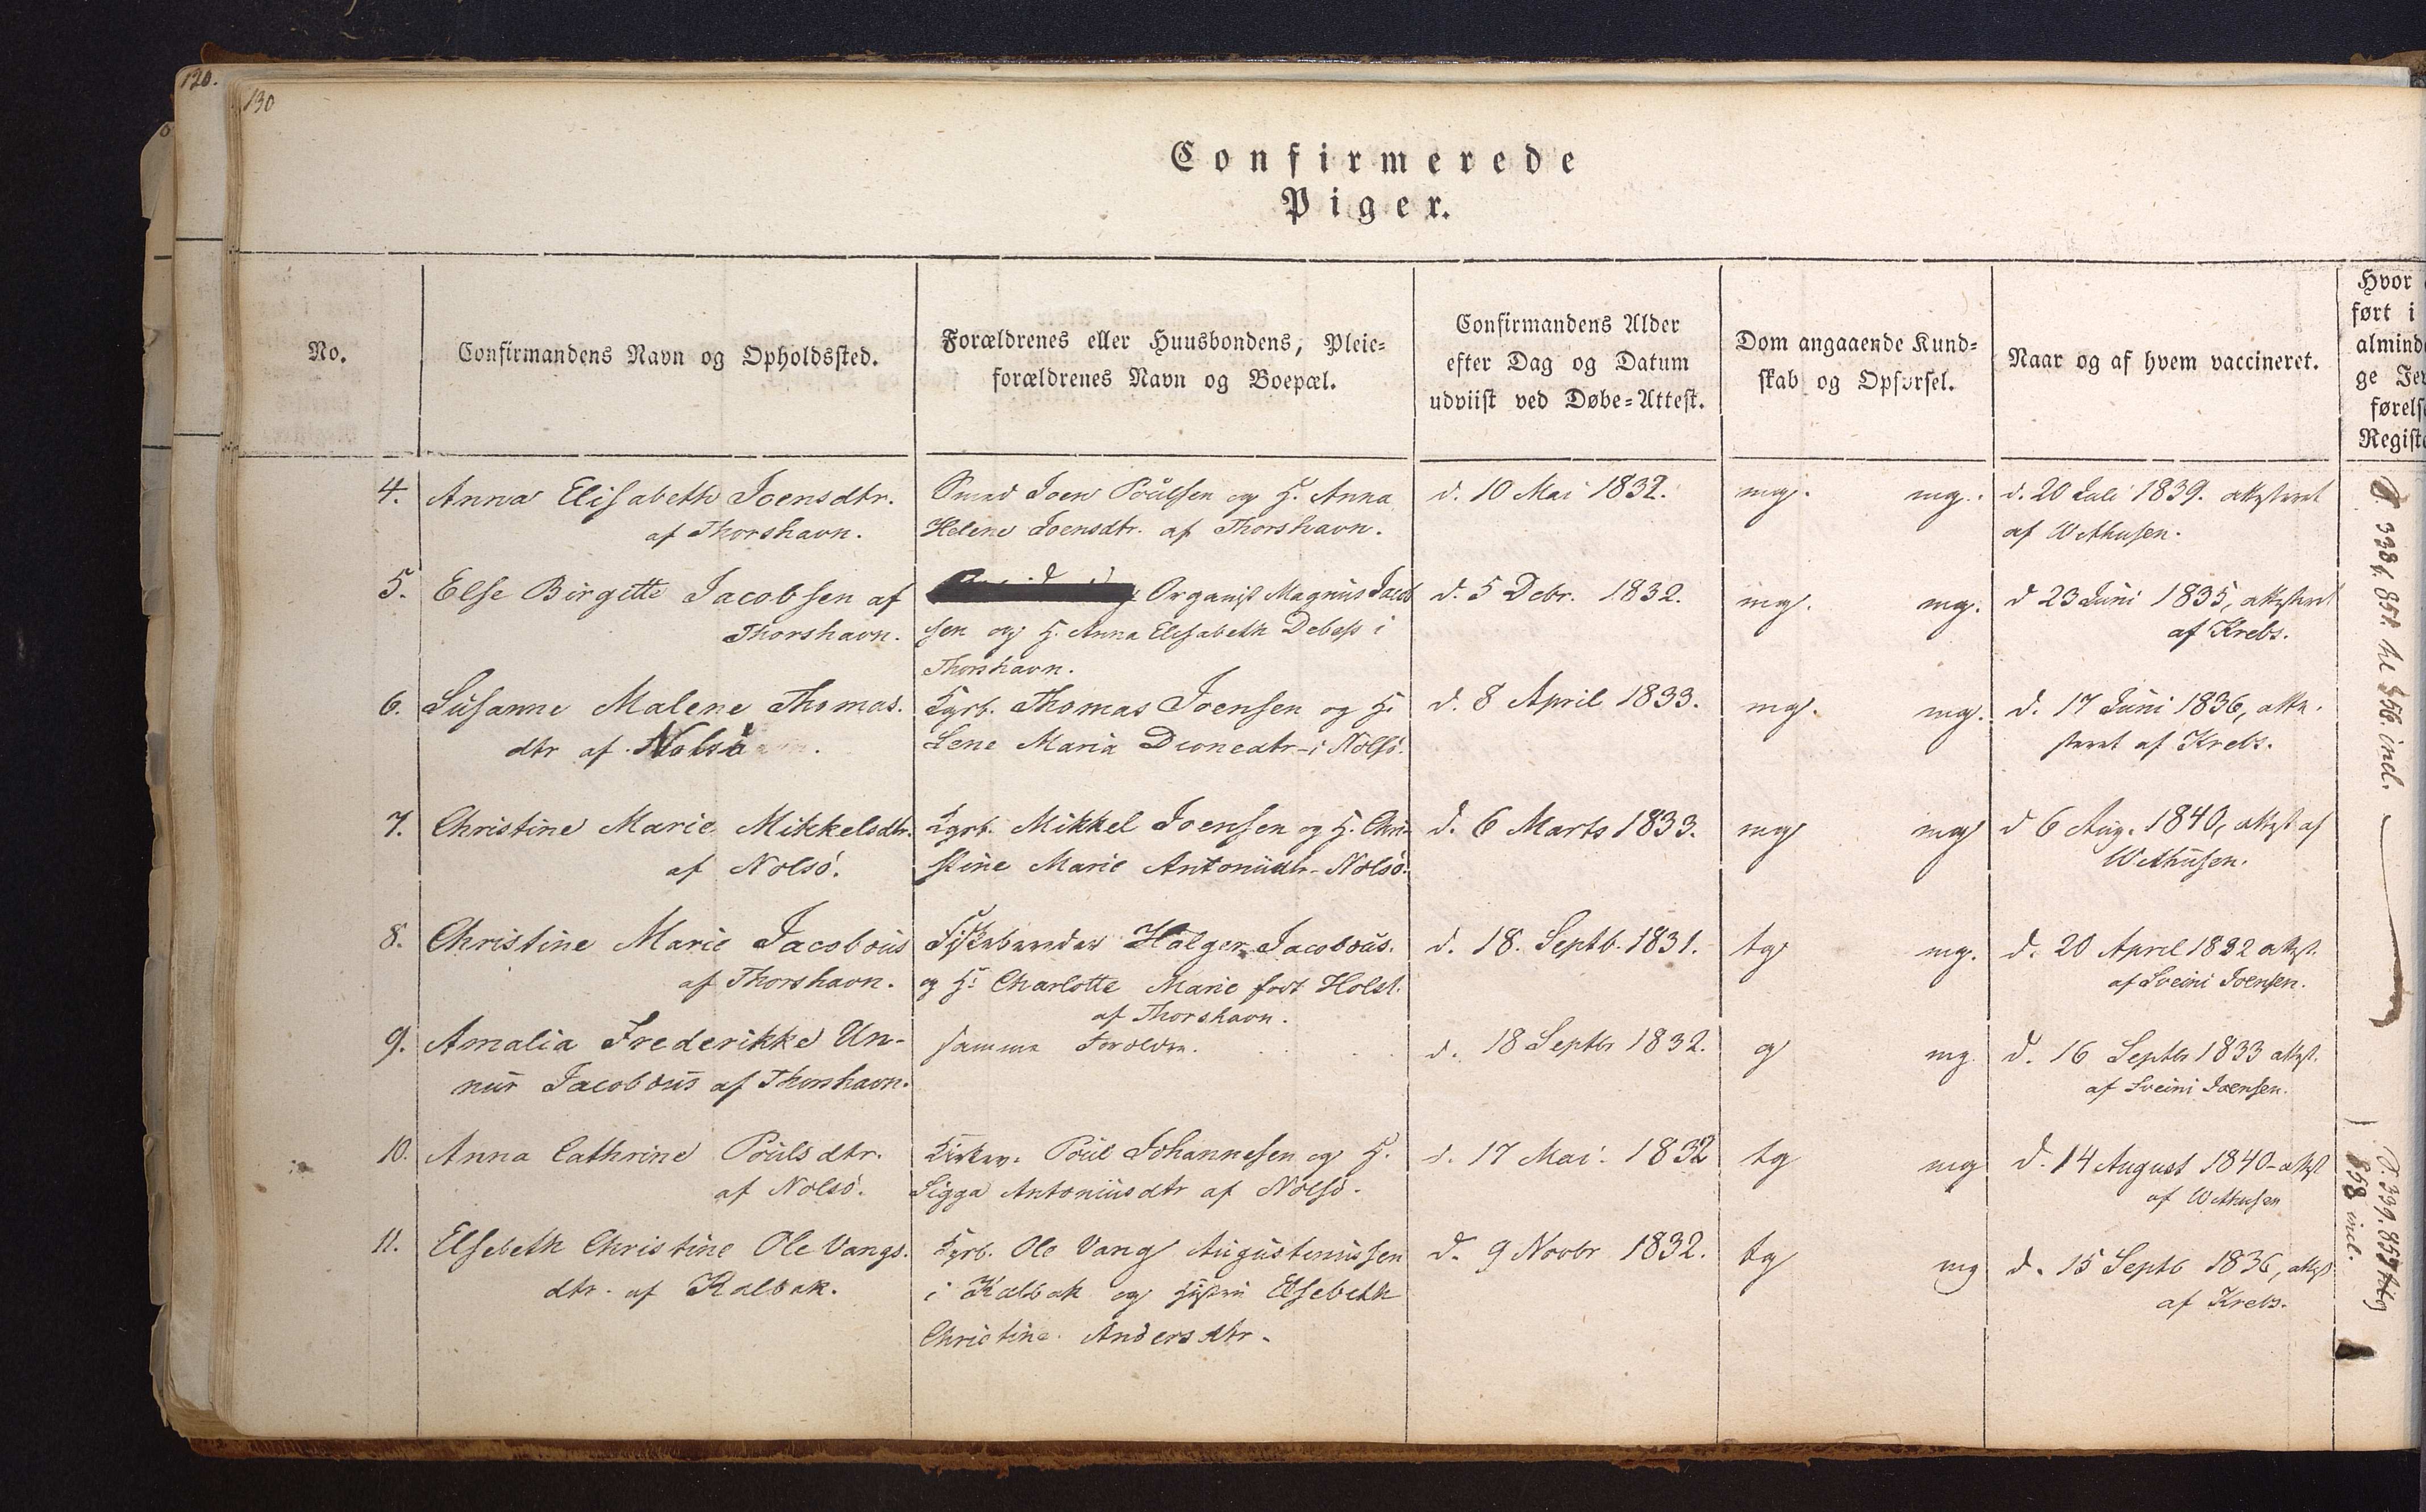 120.
130
Confirmerede
Piger.
No.
Confirmandens Navn og Opholdssted.
Forældrenes eller Huusbondens, Pleie=
forældrenes Navn og Boepæl.
Confirmandens Alder
efter Dag og Datum
udviist ved Døbe=Attest.
Dom angaaende Kund=
skab og Opførsel.
Naar og af hvem vaccineret.
Hvor
ført i
almind
ge Je
førels
Regist
4. Anna Elisabeth Joensdtr.
af Thorshavn.
Smed Joen Poulsen og H. Anna
Helene Joensdtr. af Thorshavn.
d. 10 Mai 1832.
mg. mg.
d. 20 Juli 1839. attesteret
af Wethusen.
5. Else Birgitte Jacobsen af
Thorshavn.
Organist Magnus Jacob
sen og H. Anna Elisabeth Debess i
Thorshavn.
d. 5 Debr. 1832.
mg. mg.
d 23 Juni 1835, attesteret
af Krebs.
6. Susanne Malene Thomas.
dtr af Nolsö
Thomas Joensen og H.
Lene Maria Dionedtr - i Nolsö.
d. 8 April 1833.
mg. mg.
d. 17 Juni 1836, atte.
steret af Krebs.
7. Christine Marie Mikkelsdtr.
af Nolsö.
Mikkel Joensen og H. Chri-
stine Marie Antoniidtr - Nolsö.
d. 6 Marts 1833.
mg mg
d 6 Aug. 1840, attest af
Wethusen.
8. Christine Marie Jacobous
af Thorshavn.
Holger Jacobous.
og H. Charlotte Marie født Holst.
af Thorshavn.
d. 18. Septb. 1831.
tg mg.
d. 20 April 1832 attest.
af Sveini Joensen.
9. Amalia Frederikke Un-
nur Jacobous af Thorshavn.
samme Forældre.
d. 18 Septbr 1832.
g mg
d. 16 Septbr 1833 attest.
af Sveini Joensen.
10. Anna Cathrine Poulsdtr.
af Nolsö.
Poul Johannesen og H.
Sigga Antoniusdtr af Nolsö.
d. 17 Mai 1832
tg mg
d. 14 August 1840 - attest
af Wethusen
11. Elsebeth Christine Ole Vangs.
dtr. af Kalbak.
Ole Vang Augustinussen
i Kalbak og Hustru Elsebeth
Christine Andersdtr.
d. 9 Novbr 1832.
tg mg
d. 15 Septb 1836, attest
af Krebs.
P. 338 f. 851. til 856 incl.
P. 339. 857 til
858 incl.